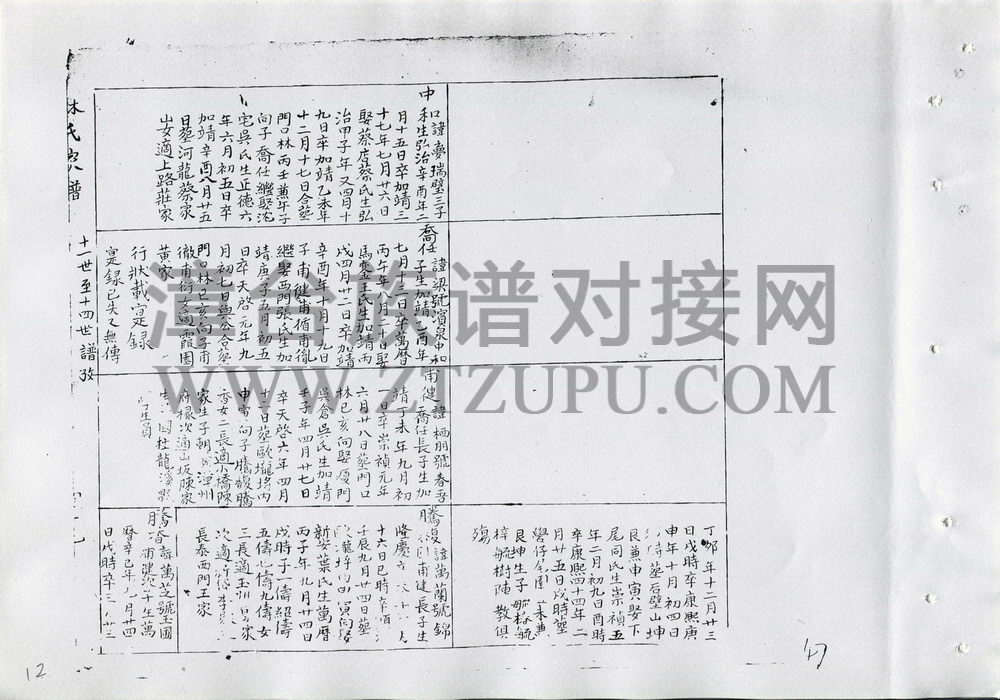 丁卯年十二月廿三
日戌時卒康熙庚
申年十月初四日
時葬后壁山坤
艮兼申寅娶下
尾同氏生崇禎五
年二月初九日酉時
卒康熙四十四年二
月廿五日戌時葬
艮坤生子
梓毓樹陣教俱
殤
中
和諱夢瑞璧三子
和生弘治辛酉年二
月十五日卒加靖三
十七年七月廿六日
娶蔡店蔡氏生弘
治甲子年又四月十
九日卒加靖乙未年
十二月十七日合葬
門口林丙壬兼午子
向子喬任繼娶沱
宅吳氏生正德六
年六月初五日卒
加靖辛酉八月廿五
日葬河龍蔡家
山女適上路莊家
喬任諱梁號濱泉中和
子生加靖乙酉年
七月十三日卒萬曆
丙午年八月二十日娶
馬麥王氏生加靖丙
戌四月十二日卒加靖
辛酉年十月十九日
子甫健甫循甫胤
繼娶西門張氏生加
靖庚子五月初五
日卒天啓元年九
月初七日與公合葬
門口林巳亥向子甫
徹甫衍女適霞園
黄家
行狀載寔錄
寔錄已失又無傳
甫健諱栖朋號春
喬任長子生加
靖丁未年九月初
一日卒崇禎元年
六月廿八日葬門口
林巳亥向娶厦門
吳倉吳氏生加靖
壬子年四月廿七日
卒天啓六年四月
十一日葬歐壠埓内
申寅向子騰馥騰
香女二長適小橋陳
家生子朝 漳州
府椽次適山坂陳家
杜龍溪
生員
騰馥諱萬蘭號錦
甫健長子生
隆慶六
十六日巳時卒
壬辰九月廿四日葬
寅向娶
新安葉氏生萬曆
丙子年九月廿四日
戌時子一儔紹儔
五儔七儔九儔女
三長適玉州
次適
長泰西門王家
騰香諱萬芝號玉圃
甫健次子生萬
曆辛巳年九月廿四
日戌時卒
林氏家譜
十一世至十四世譜攷
12
47
漳台族谱对接网
WWW.ZTZUPU.COM